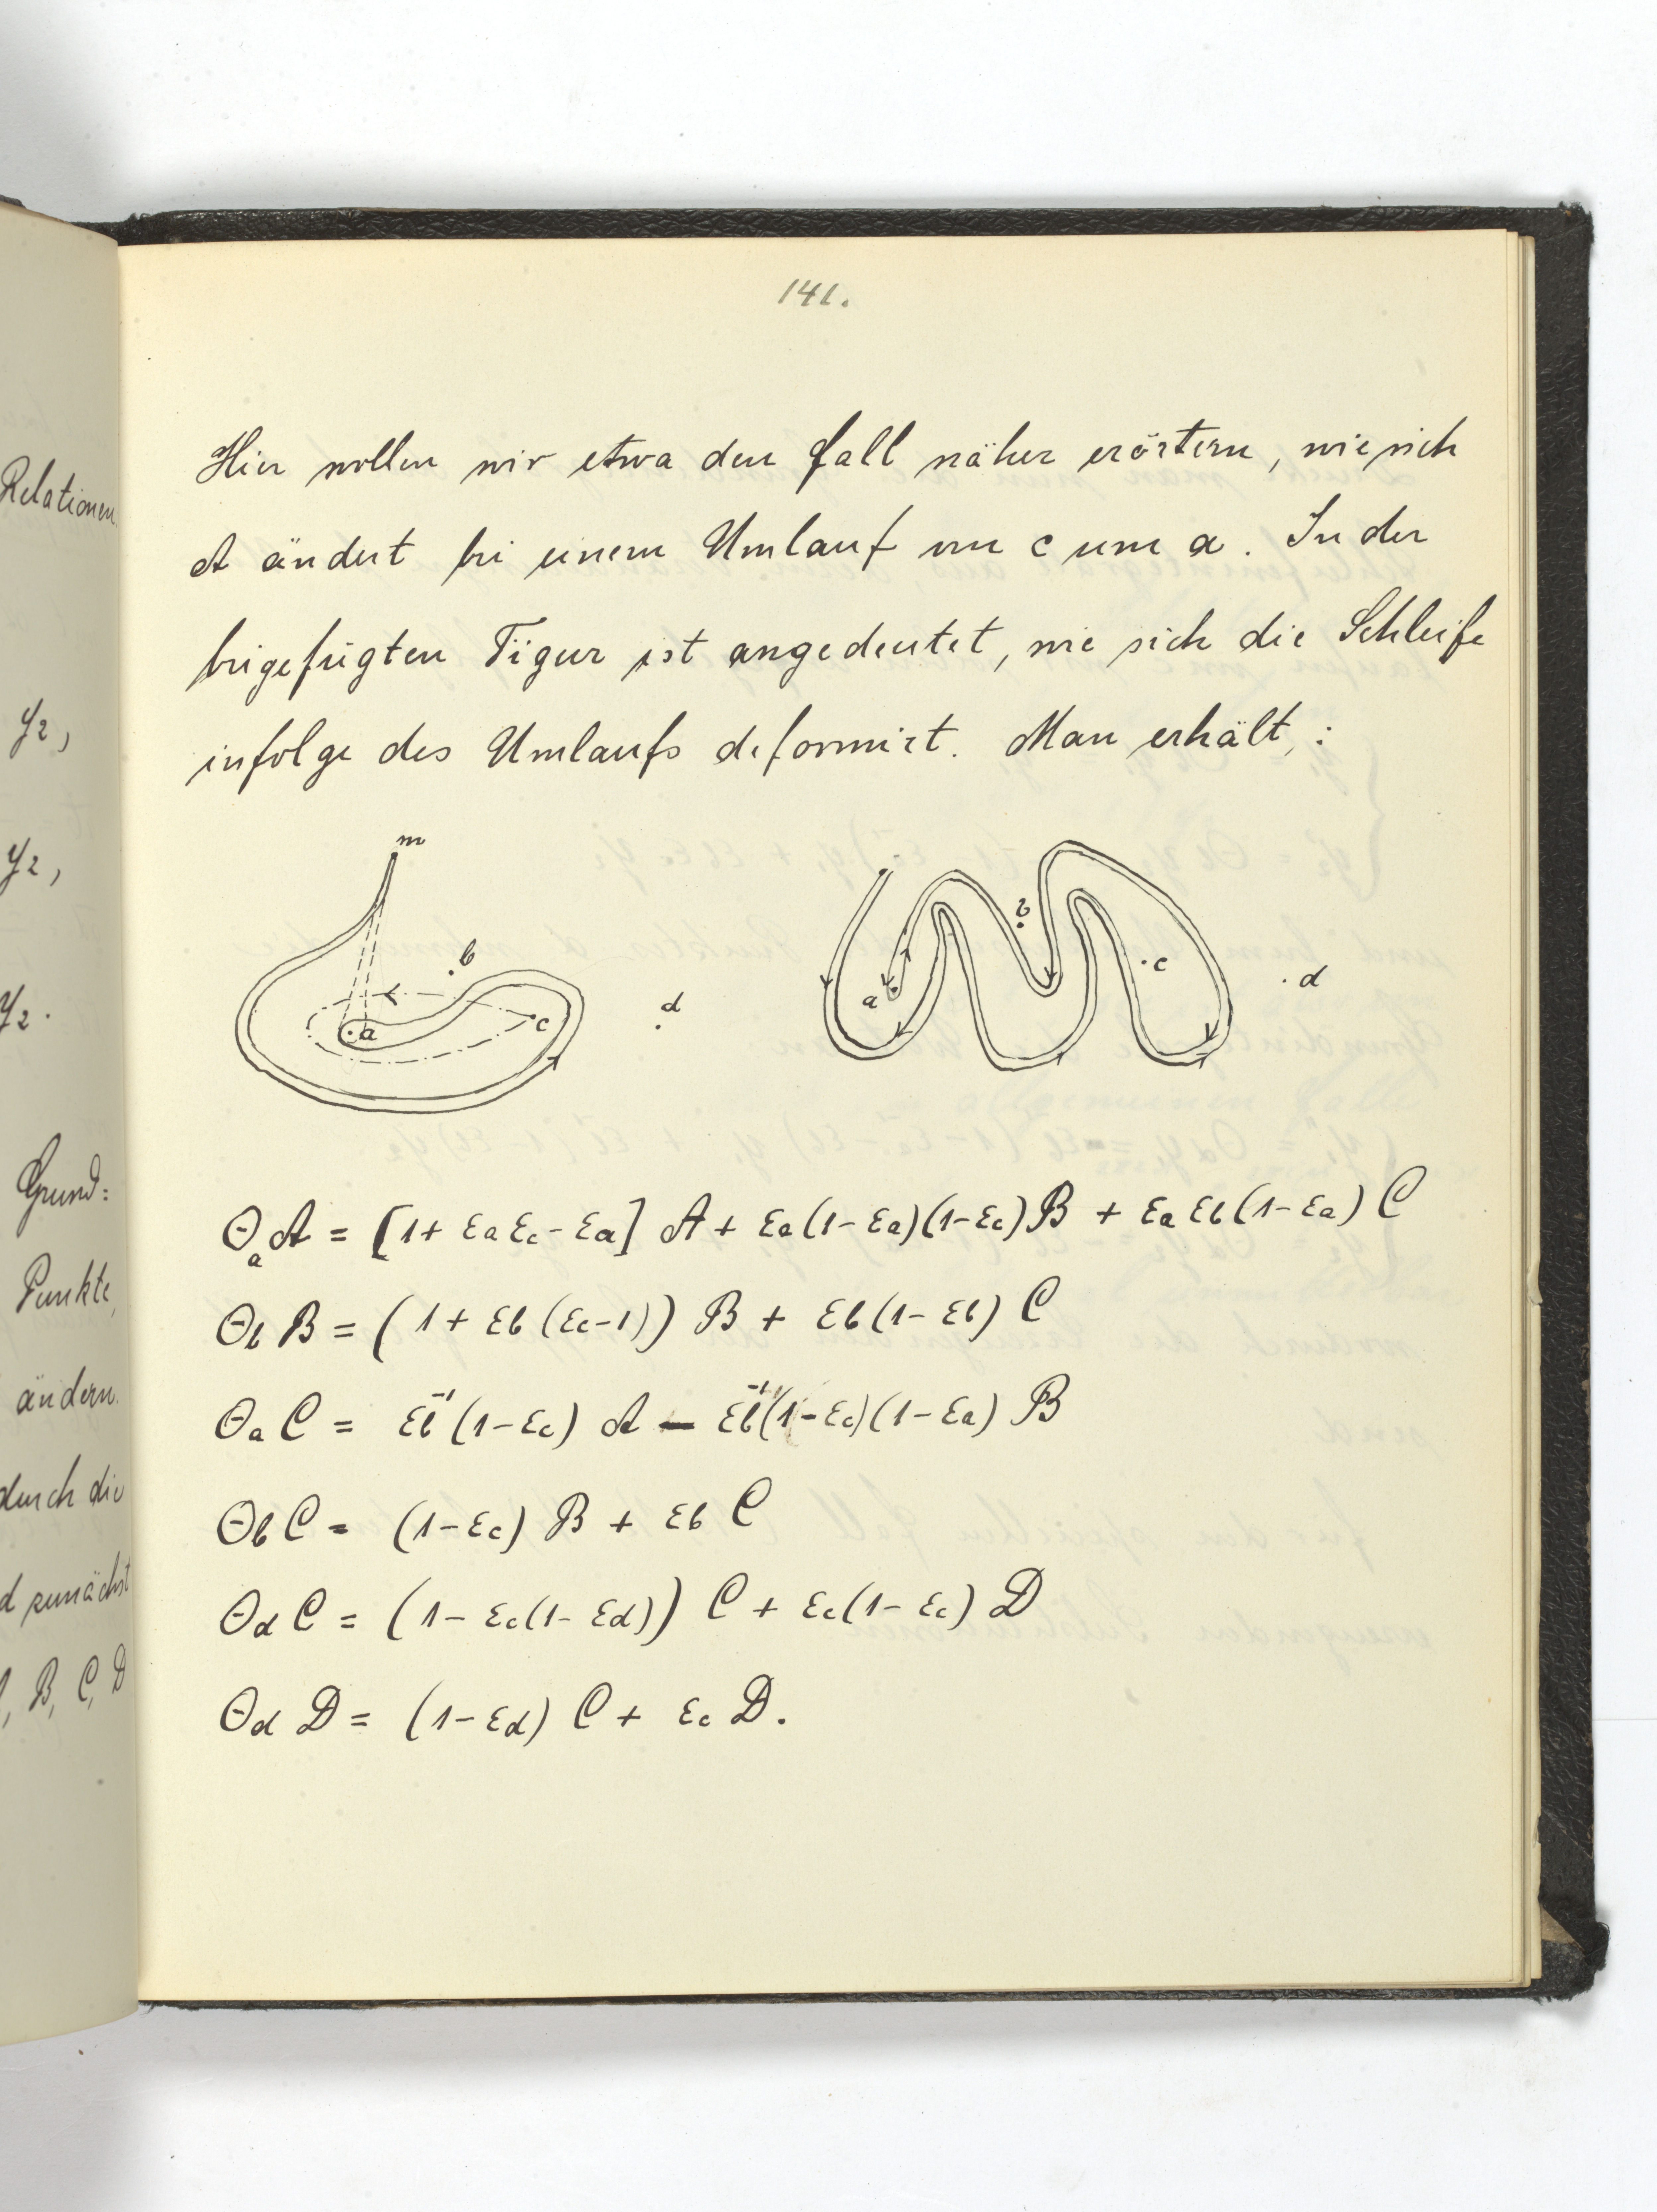 141.
Relationen.
y₂,
y₂,
y₂.
Grund=
Punkte,
ändern.
durch die
d zunächst
, B, C, D
Hier wollen wir etwa den Fall näher erörtern, wie sich
A ändert bei einem Umlauf von c um a. In der
beigefügten Figur ist angedeutet, wie sich die Schleife
infolge des Umlaufs deformirt. Man erhält,:
m
b
a
c
d
b
a
c
d
Θₐ A = [1 + εₐ ε_c - εₐ] A + εₐ(1-εₐ)(1-ε_c) B + εₐ ε_b (1-εₐ) C
Θ_b B = (1 + ε_b (ε_c-1)) B + ε_b (1-ε_b) C
Θₐ C = ε_b⁻¹ (1-ε_c) A - ε_b⁻¹ (1-ε_c)(1-εₐ) B
Θ_b C = (1-ε_c) B + ε_b C
Θ_d C = (1 - ε_c(1-ε_d)) C + ε_c(1-ε_c) D
Θ_d D = (1-ε_d) C + ε_c D.